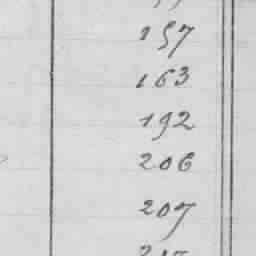 157
163
192
206
207